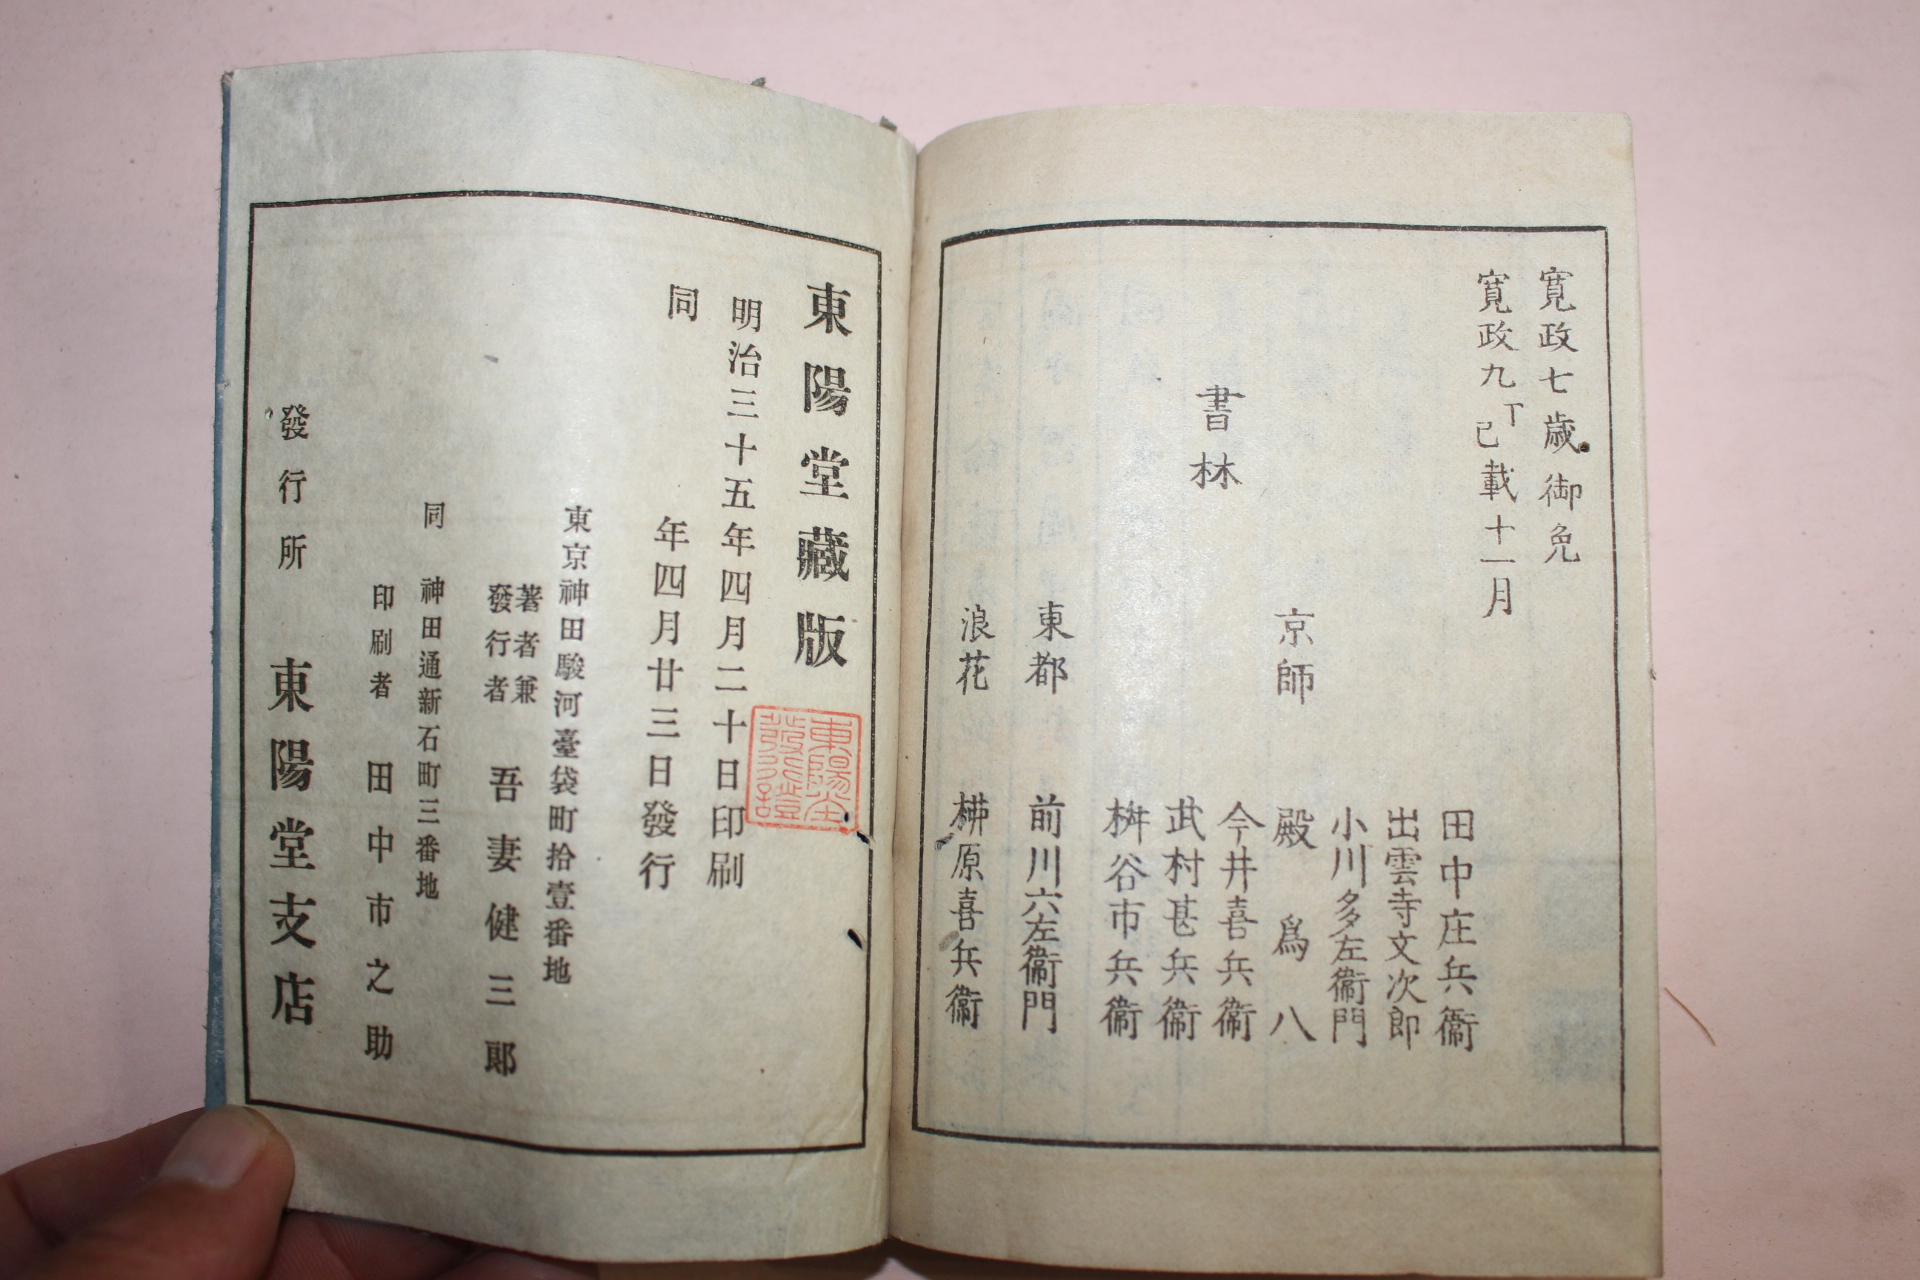 寛政七歳御免
寛政九丁巳載十一月
書林
京師
田中庄兵衞
出雲寺文次郎
小川多左衞門
殿爲八
今井喜兵衞
武村甚兵衞
桝谷市兵衞
東都
前川六左衞門
浪花
柳原喜兵衞
東陽堂藏版
明治三十五年四月二十日印刷
同年四月廿三日發行
東陽堂發行證
東京神田駿河臺袋町拾壹番地
著者兼
發行者
吾妻健三郎
同神田通新石町三番地
印刷者田中市之助
發行所東陽堂支店